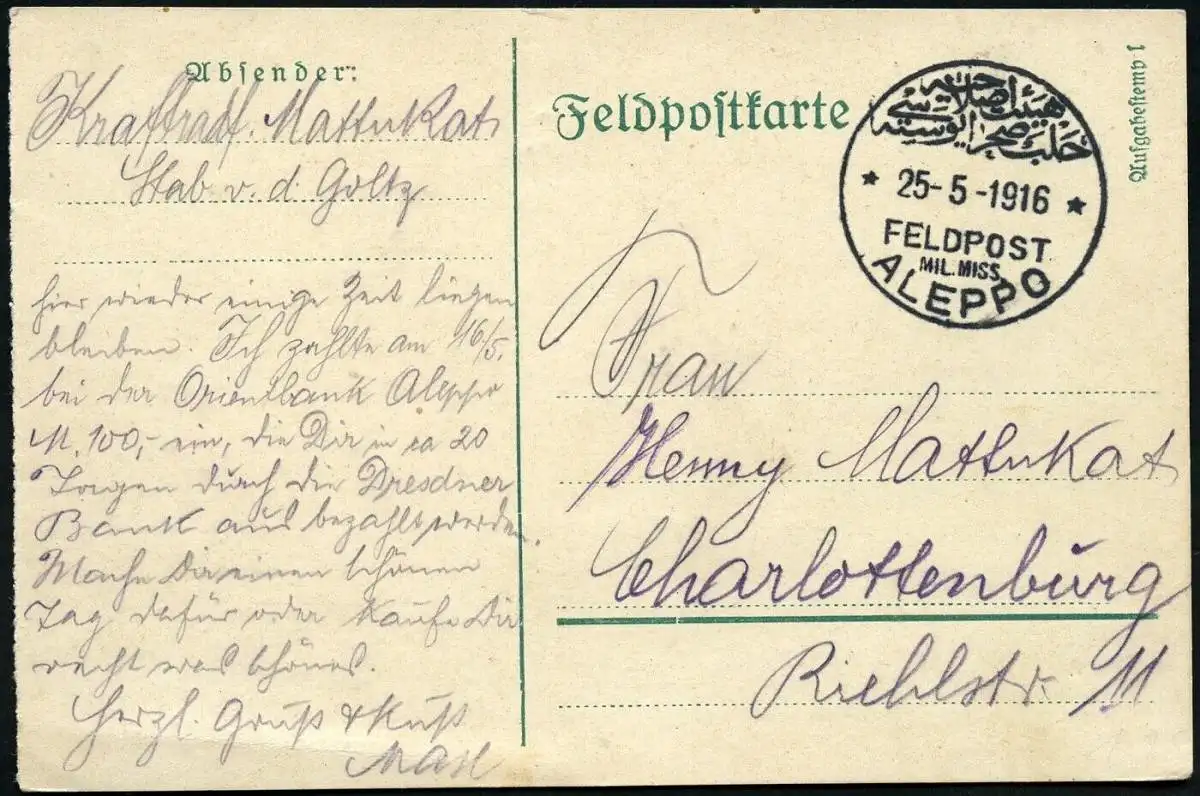 Absender:
Mattukat
Stab v. d. Goltz
hier wieder einige Zeit liegen
bleiben. Ich zahlte am 16/5.
bei der Orientbank Aleppo
M. 100,- ein, die Dir in ca 20
Tagen durch die Dresdner
Bank aus bezahlt werden.
Mache Dir einen schönen
Tag dafür oder kaufe Dir
recht was schönes.
Herzl. Gruß & Kuß
Feldpostkarte
Aufgabestempl
* 25-5-1916 *
FELDPOST
MIL. MISS.
ALEPPO
Frau
Henny Mattukat
Charlottenburg
Riehlstr. 11